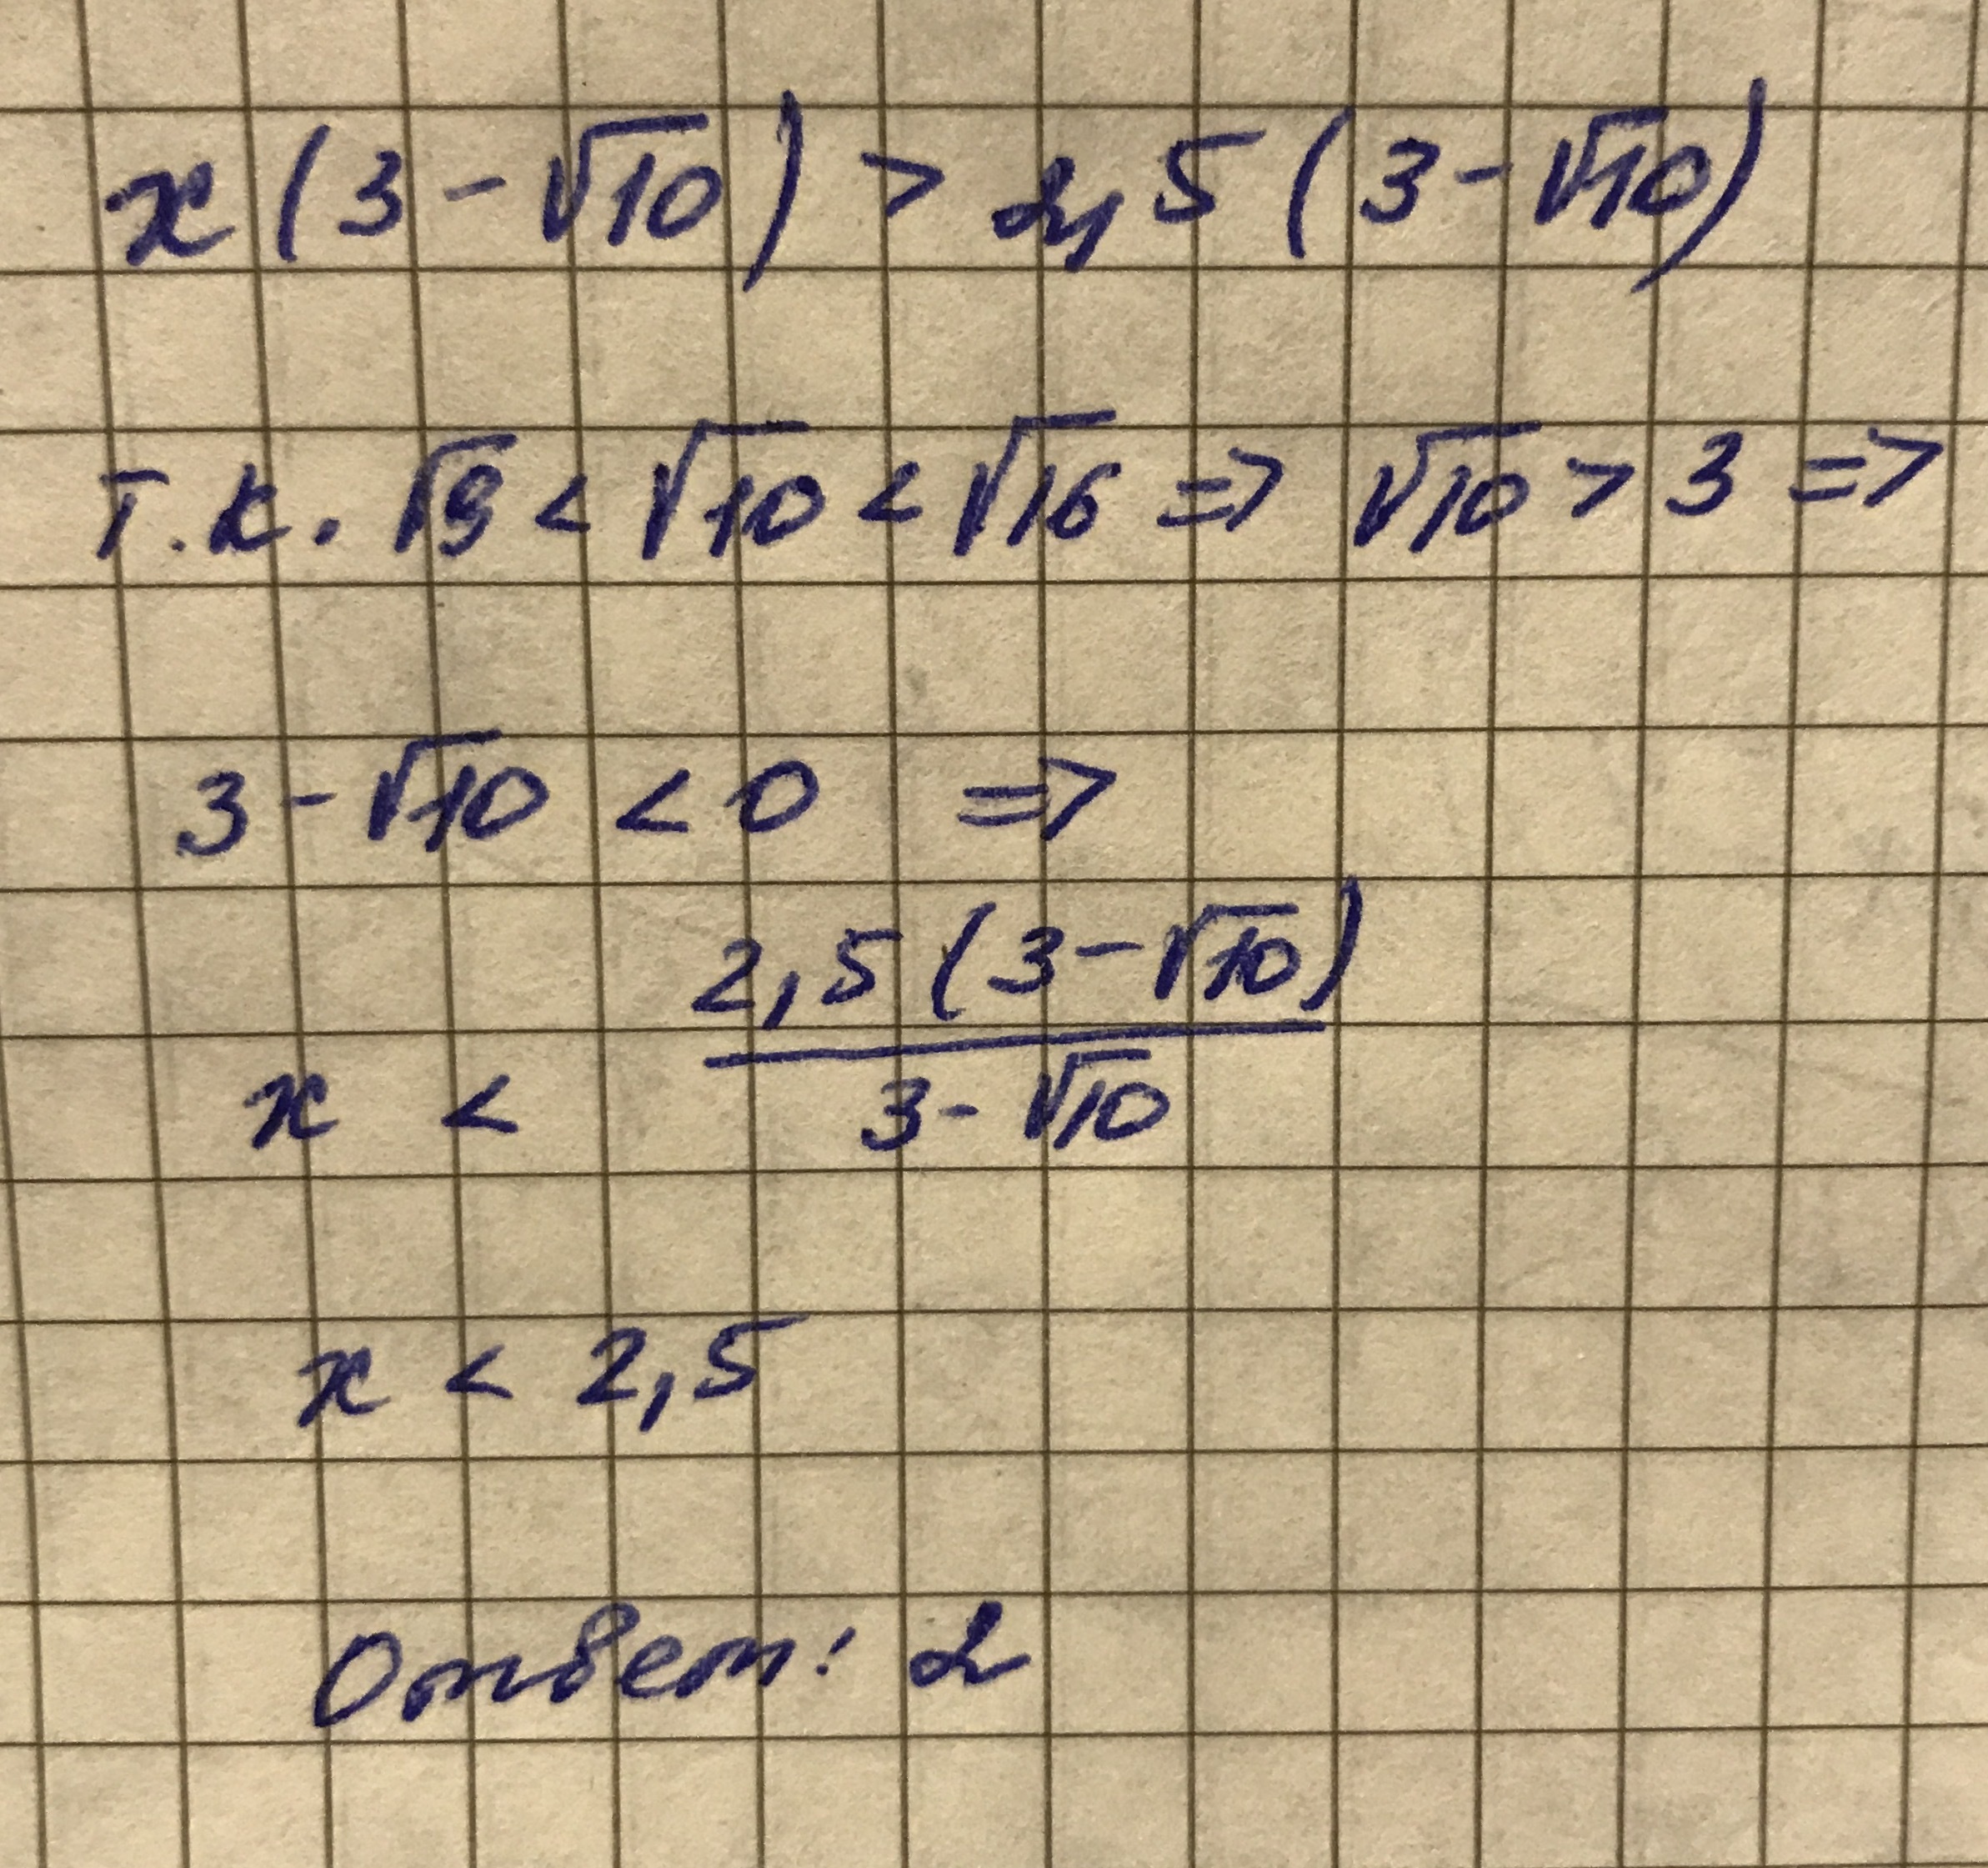 x(3-√10) > 2,5(3-√10)
т.к. √9 < √10 < √16 => √10 > 3 =>
3-√10 < 0 =>
x < 2,5(3-√10)/3-√10
x < 2,5
Ответ: 2